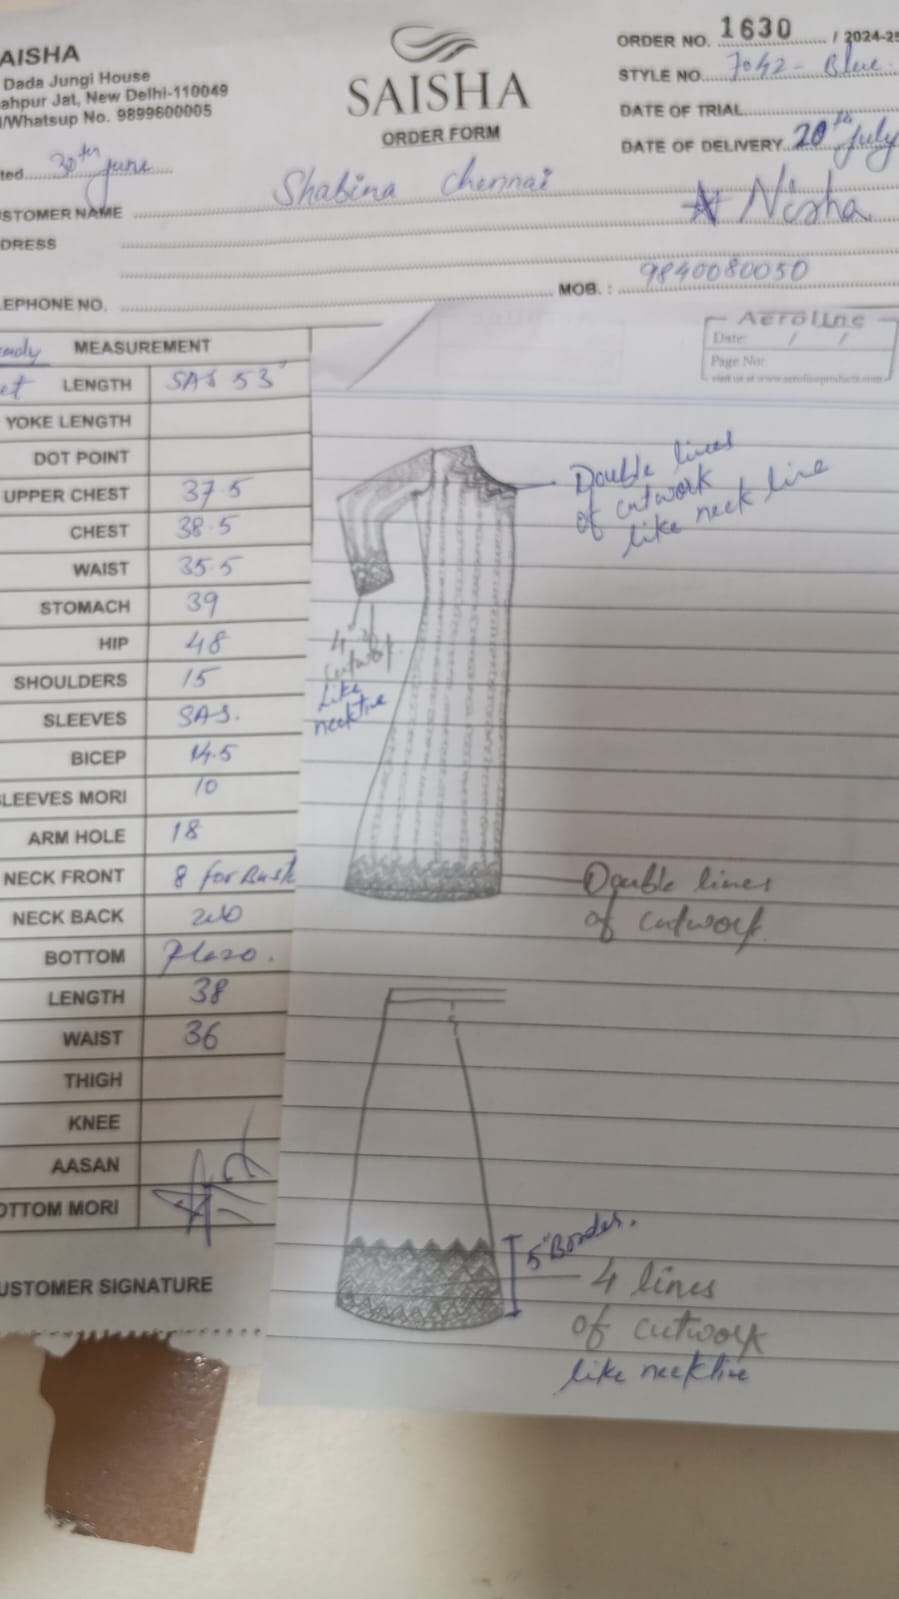 AISHA
Dada Jungi House
ahpur Jat, New Delhi-110049
l/Whatsup No. 9899600005
ted 30th june
SAISHA
ORDER FORM
ORDER NO. 1630 / 2024-25
STYLE NO. 7042 - Blue
DATE OF TRIAL
DATE OF DELIVERY 20th July
STOMER NAME Shabina Chennai
Nisha
DRESS
EPHONE NO.
MOB. : 9840080050
MEASUREMENT
LENGTH SAS 53"
YOKE LENGTH
DOT POINT
UPPER CHEST 37.5
CHEST 38.5
WAIST 35.5
STOMACH 39
HIP 48
SHOULDERS 15
SLEEVES SAS.
BICEP 14.5
LEEVES MORI 10
ARM HOLE 18
NECK FRONT 8 for
NECK BACK
BOTTOM Plazo.
LENGTH 38
WAIST 36
THIGH
KNEE
AASAN
OTTOM MORI
USTOMER SIGNATURE
Aeroline
Date: / /
Page No:
visit us at www.aerolineproducts.com
Double lines
of cutwork
like neck line
4
cutwork
Like
neckline
Double lines
of cutwork
5" Border.
4 lines
of cutwork
like neckline